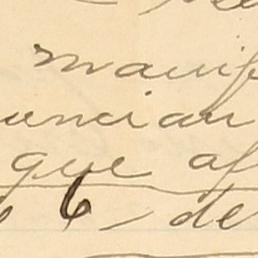 manif
uncian
que af
6 de